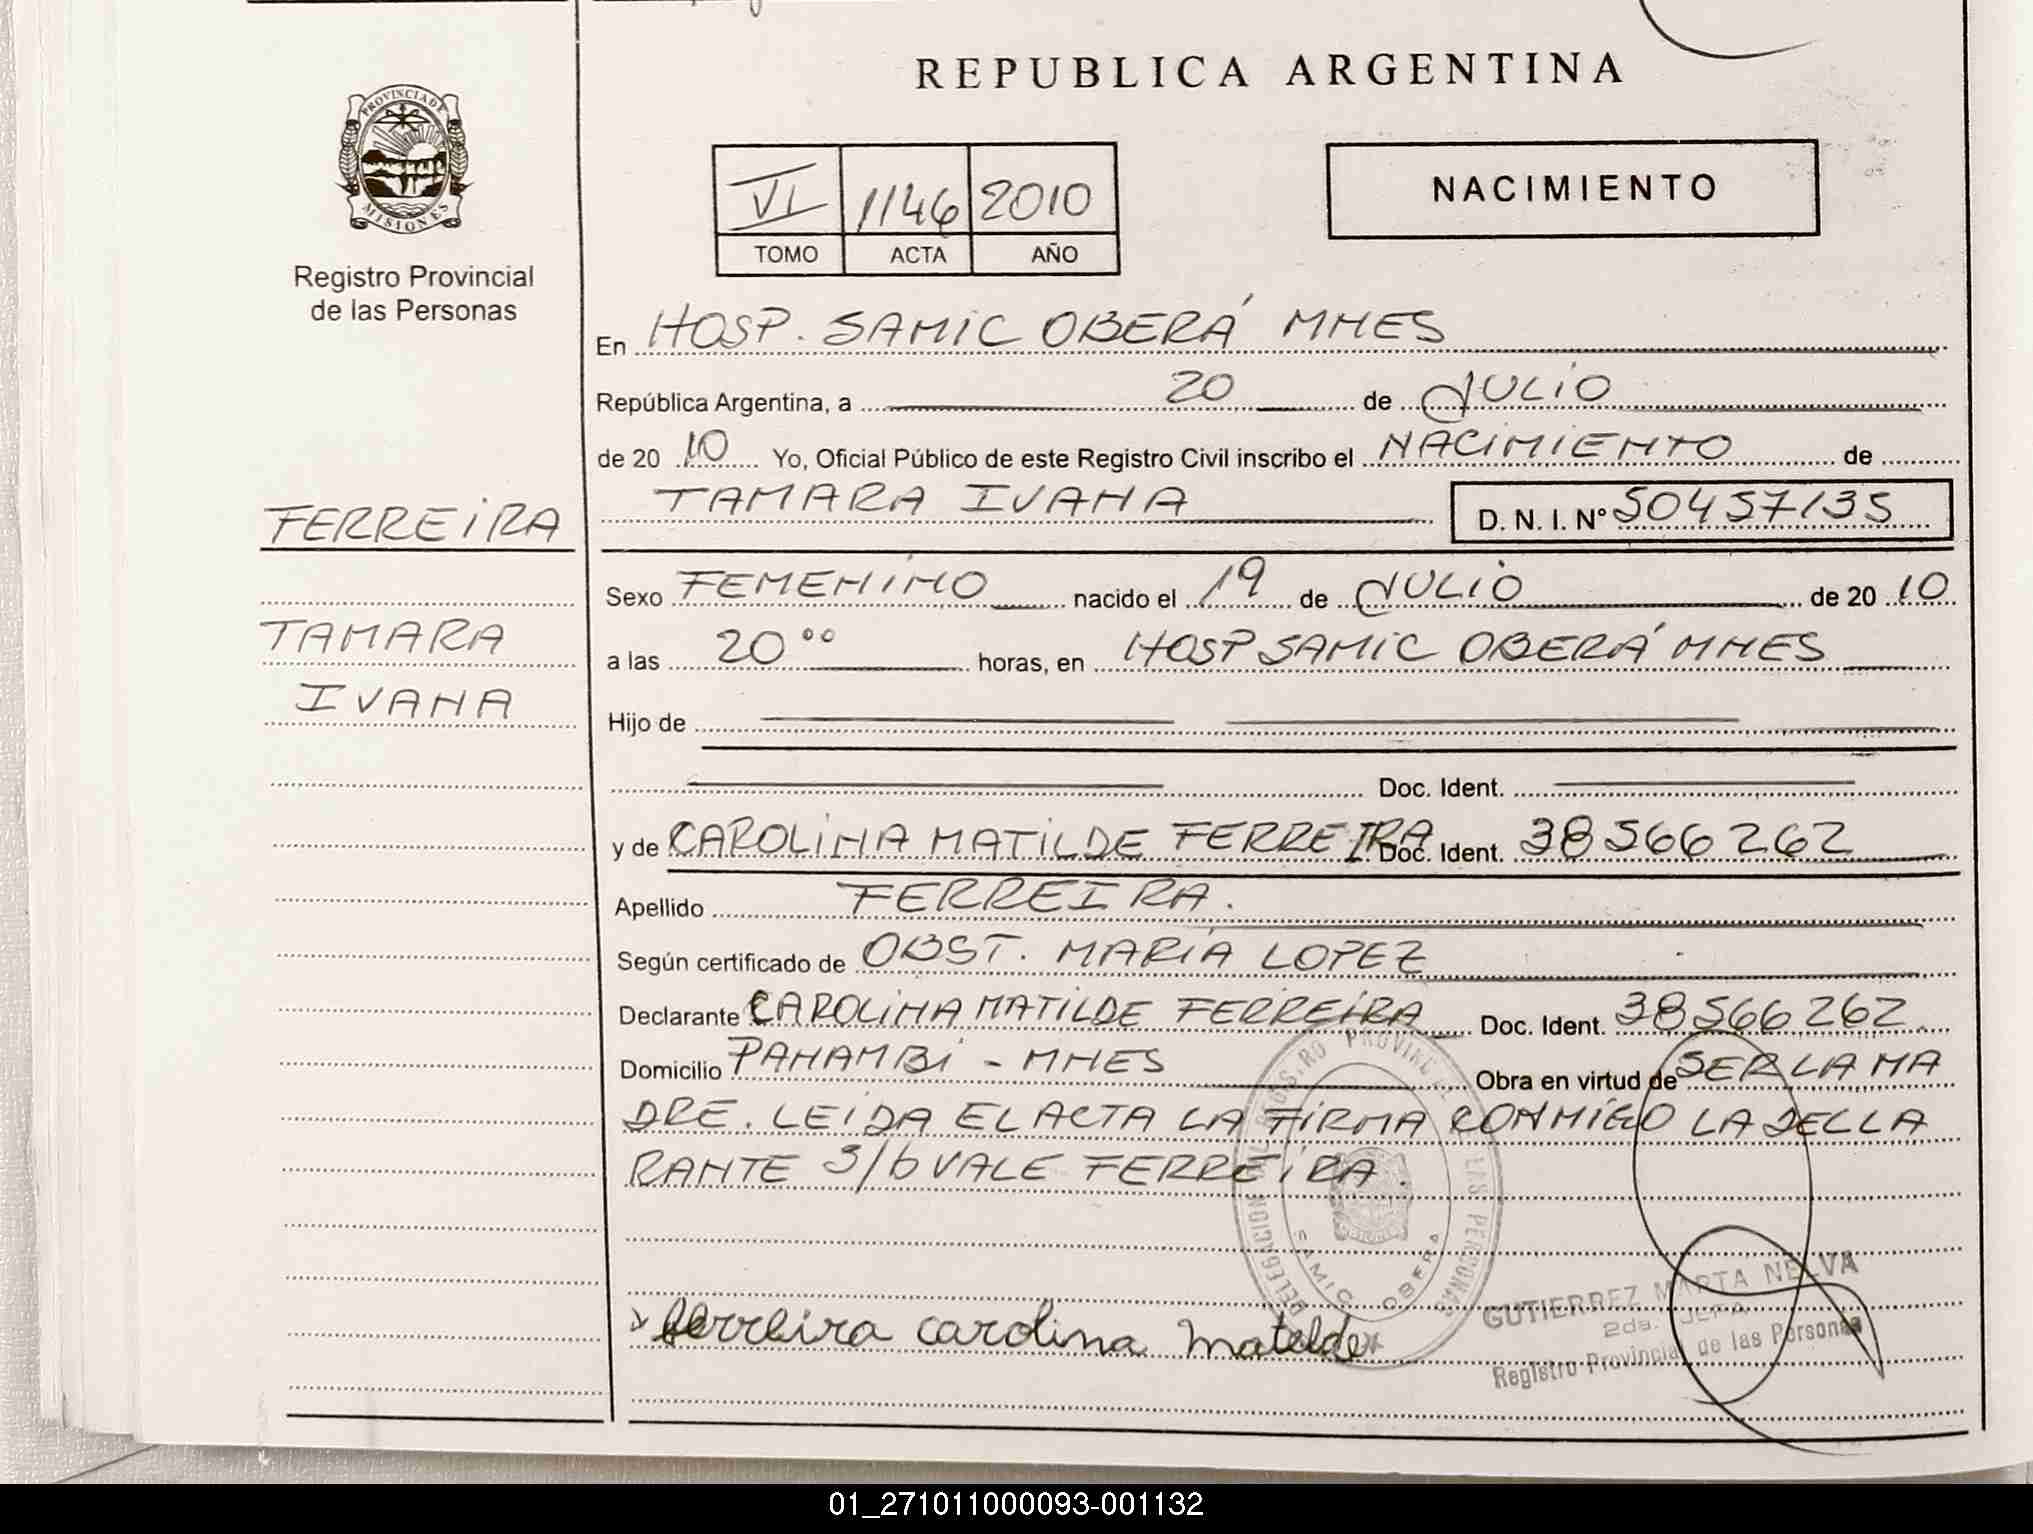 REPUBLICA ARGENTINA
PROVINCIA DE
MISIONES
Registro Provincial
de las Personas
VI 1146 2010
TOMO ACTA AÑO
NACIMIENTO
En HOSP. SAMIC OBERÁ MNES
República Argentina, a 20 de JULIO
de 20 10 Yo, Oficial Público de este Registro Civil inscribo el NACIMIENTO de
TAMARA IVANA D. N. I. N° 50457135
FERREIRA
TAMARA
IVANA
Sexo FEMENINO nacido el 19 de JULIO de 20 10
a las 20 °° horas, en HOSP SAMIC OBERÁ MNES
Hijo de
Doc. Ident.
y de CAROLINA MATILDE FERREIRA Doc. Ident. 38566262
Apellido FERREIRA.
Según certificado de OBST. MARIA LOPEZ
Declarante CAROLINA MATILDE FERREIRA Doc. Ident. 38566262
Domicilio PANAMBI - MNES Obra en virtud de SER LA MA
DRE. LEIDA EL ACTA LA FIRMA CONMIGO LA DECLA
RANTE S/b VALE FERREIRA.
DELEGACION REGISTRO PROVINCIAL DE LAS PERSONAS
SAMIC OBERA
ferreira carolina matilde
GUTIERREZ MARTA NELVA
2da. JEFA
Registro Provincial de las Personas
01_271011000093-001132